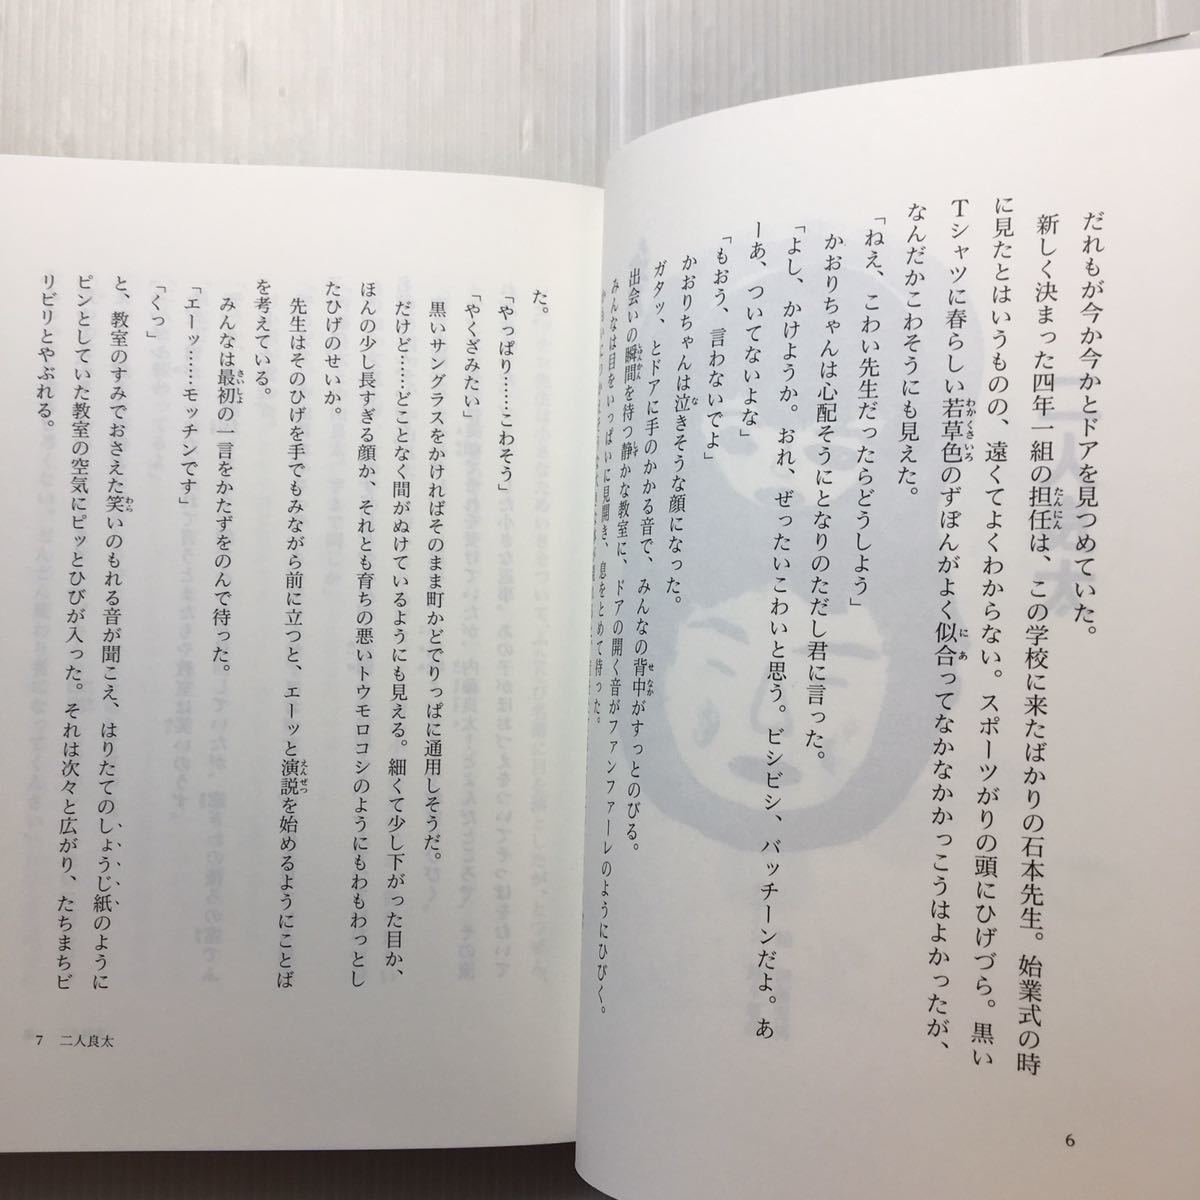 だれもが今か今かとドアを見つめていた。
新しく決まった四年一組の担任は、この学校に来たばかりの石本先生。始業式の時
に見たとはいうものの、遠くてよくわからない。スポーツがりの頭にひげづら。黒い
Tシャツに春らしい若草色のずぼんがよく似合ってなかなかかっこうはよかったが、
なんだかこわそうにも見えた。
「ねえ、こわい先生だったらどうしよう」
かおりちゃんは心配そうにとなりのただし君に言った。
「よし、かけようか。おれ、ぜったいこわいと思う。ビシビシ、バッチーンだよ。あ
ーあ、ついてないよな」
「もおう、言わないでよ」
かおりちゃんは泣きそうな顔になった。
ガタッ、とドアに手のかかる音で、みんなの背中がすっとのびる。
出会いの瞬間を待つ静かな教室に、ドアの開く音がファンファーレのようにひびく。
みんなは目をいっぱいに見開き、息をとめて待った。
6
た。
「やっぱり……こわそう」
「やくざみたい」
黒いサングラスをかければそのまま町かどでりっぱに通用しそうだ。
だけど……どことなく間がぬけているようにも見える。細くて少し下がった目か、
ほんの少し長すぎる顔か、それとも育ちの悪いトウモロコシのようにもわもわっとし
たひげのせいか。
先生はそのひげを手でもみながら前に立つと、エーッと演説を始めるようにことば
を考えている。
みんなは最初の一言をかたずをのんで待った。
「エーッ……モッチンです」
「くっ」
と、教室のすみでおさえた笑いのもれる音が聞こえ、はりたてのしょうじ紙のように
ピンとしていた教室の空気にピッとひびが入った。それは次々と広がり、たちまちビ
リビリとやぶれる。
7 二人良太